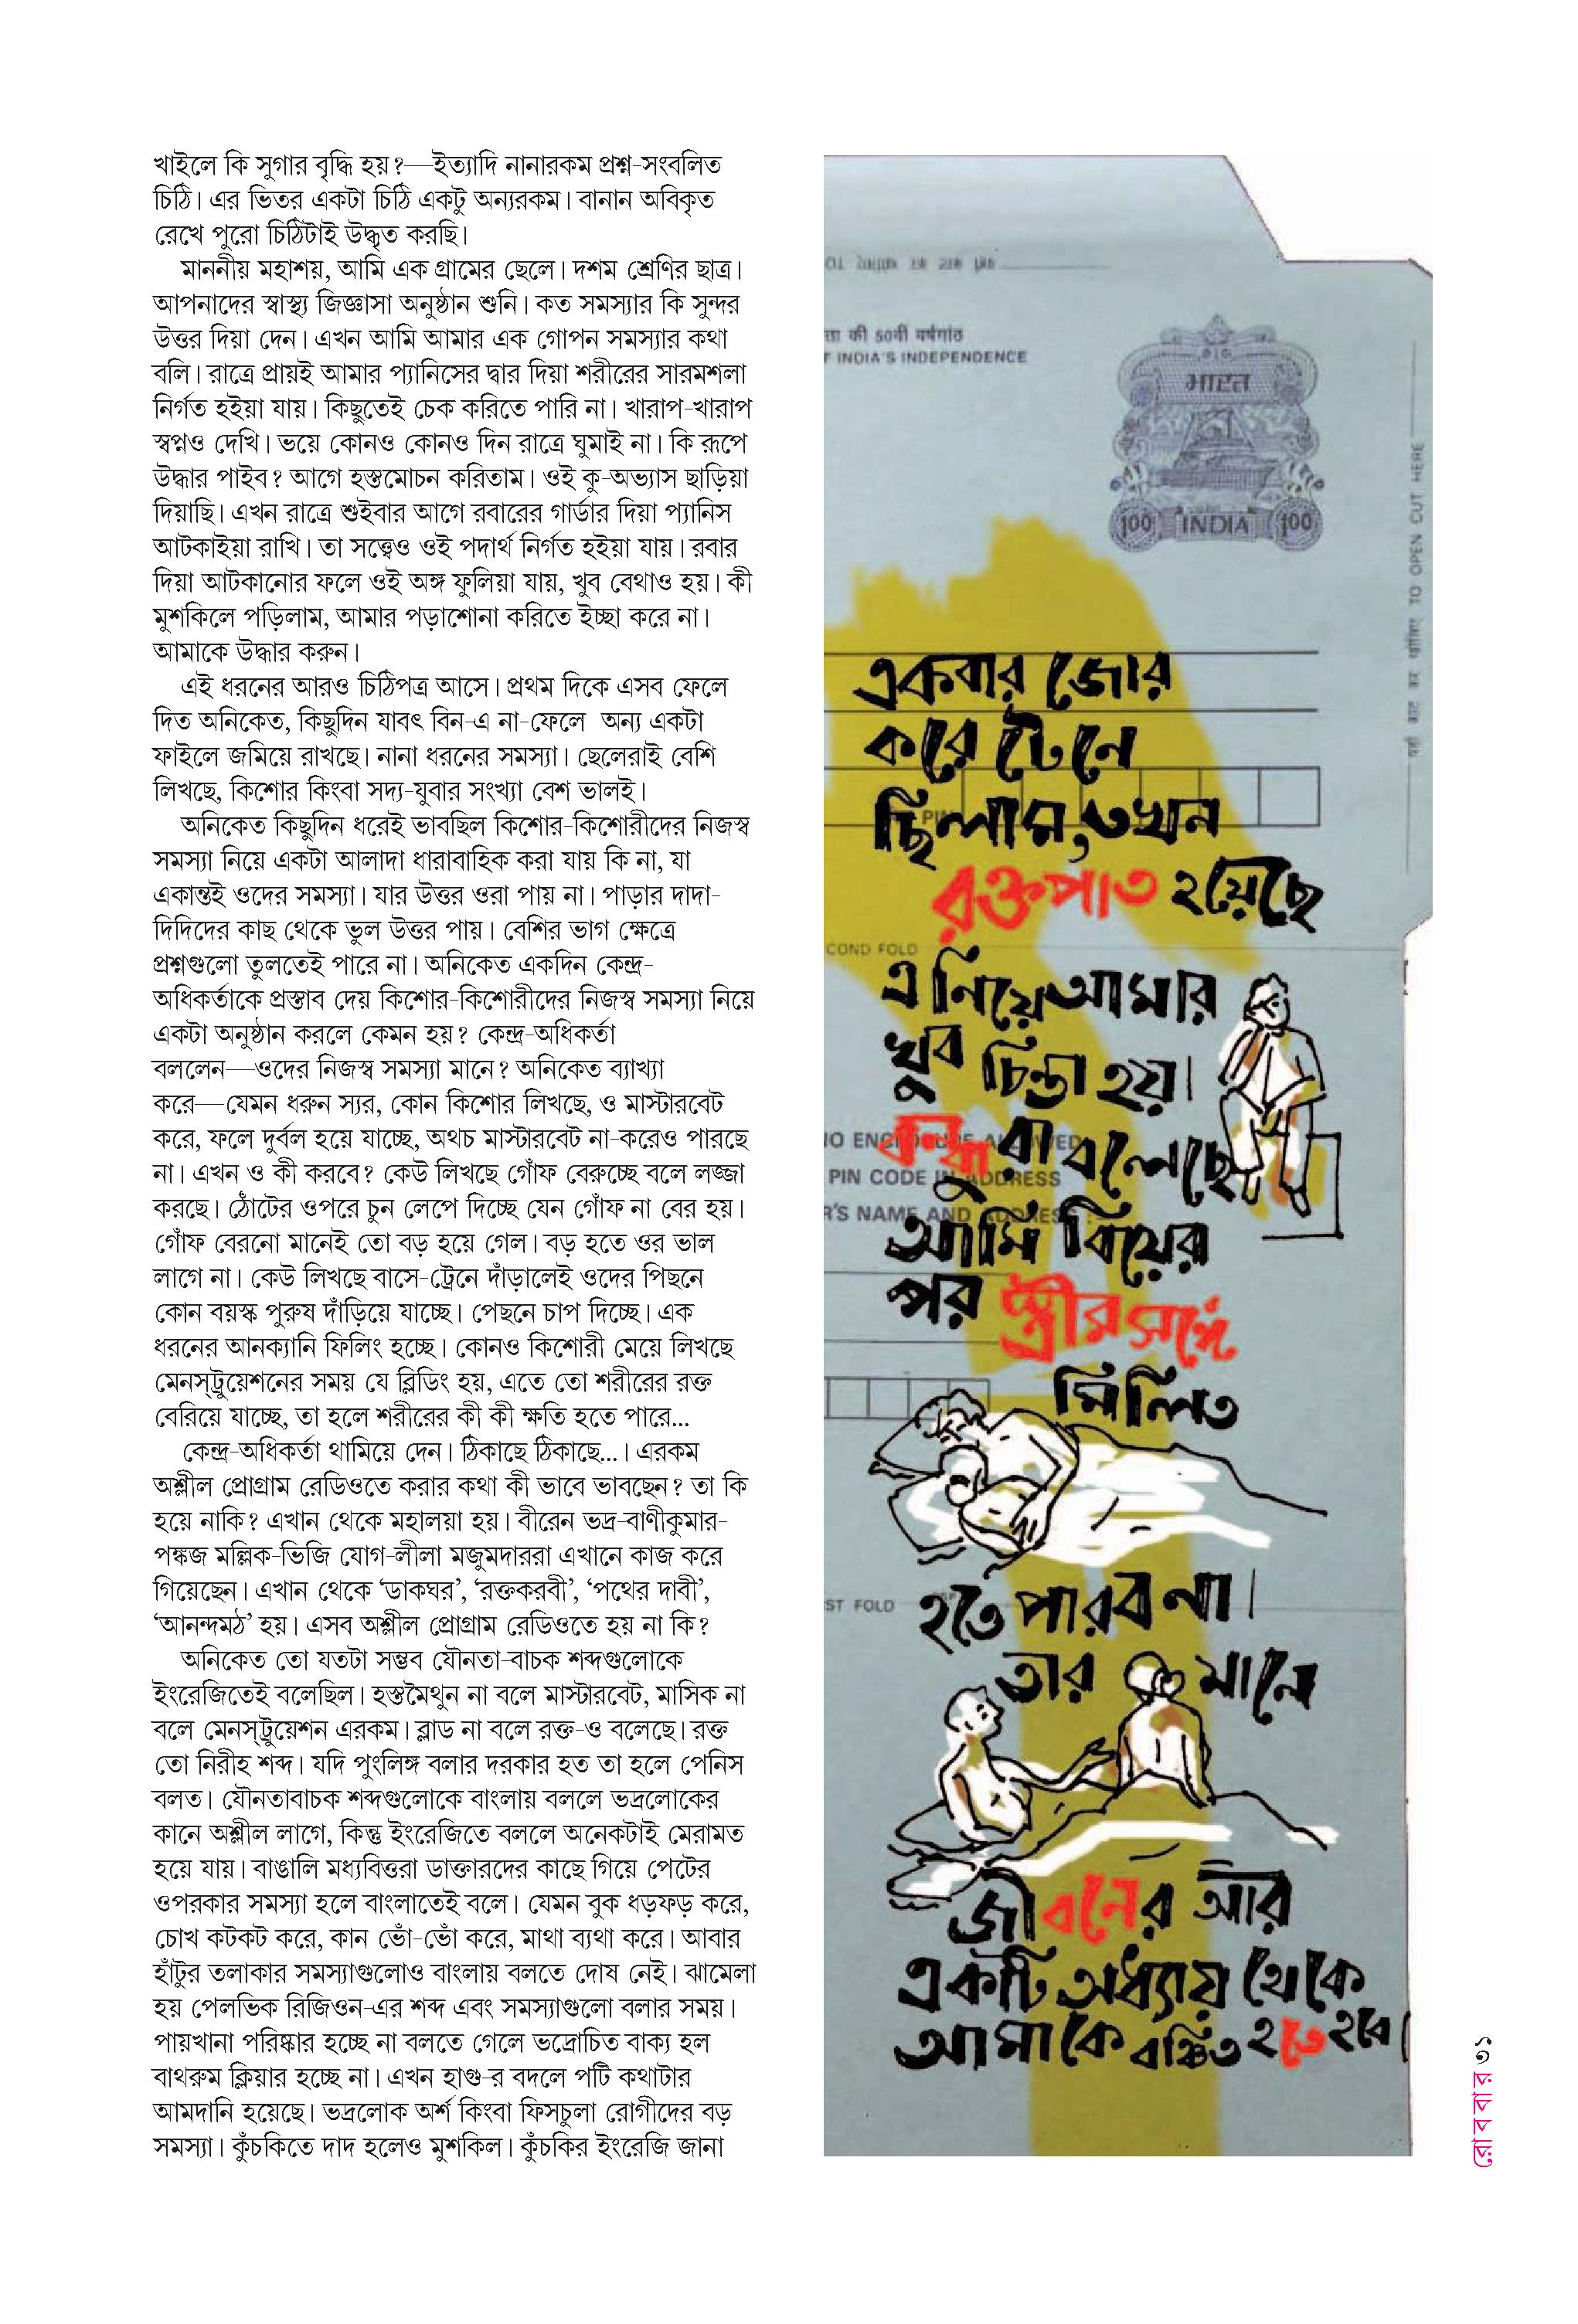 খাইলে কি সুগার বৃদ্ধি হয়?—ইত্যাদি নানারকম প্রশ্ন-সংবলিত
চিঠি। এর ভিতর একটা চিঠি একটু অন্যরকম। বানান অবিকৃত
রেখে পুরো চিঠিটাই উদ্ধৃত করছি।
মাননীয় মহাশয়, আমি এক গ্রামের ছেলে। দশম শ্রেণির ছাত্র।
আপনাদের স্বাস্থ্য জিজ্ঞাসা অনুষ্ঠান শুনি। কত সমস্যার কি সুন্দর
উত্তর দিয়া দেন। এখন আমি আমার এক গোপন সমস্যার কথা
বলি। রাত্রে প্রায়ই আমার প্যানিসের দ্বার দিয়া শরীরের সারমশলা
নির্গত হইয়া যায়। কিছুতেই চেক করিতে পারি না। খারাপ-খারাপ
স্বপ্নও দেখি। ভয়ে কোনও কোনও দিন রাত্রে ঘুমাই না। কি রূপে
উদ্ধার পাইব? আগে হস্তমোচন করিতাম। ওই কু-অভ্যাস ছাড়িয়া
দিয়াছি। এখন রাত্রে শুইবার আগে রবারের গার্ডার দিয়া প্যানিস
আটকাইয়া রাখি। তা সত্ত্বেও ওই পদার্থ নির্গত হইয়া যায়। রবার
দিয়া আটকানোর ফলে ওই অঙ্গ ফুলিয়া যায়, খুব বেথাও হয়। কী
মুশকিলে পড়িলাম, আমার পড়াশোনা করিতে ইচ্ছা করে না।
আমাকে উদ্ধার করুন।
এই ধরনের আরও চিঠিপত্র আসে। প্রথম দিকে এসব ফেলে
দিত অনিকেত, কিছুদিন যাবৎ বিন-এ না-ফেলে অন্য একটা
ফাইলে জমিয়ে রাখছে। নানা ধরনের সমস্যা। ছেলেরাই বেশি
লিখছে, কিশোর কিংবা সদ্য-যুবার সংখ্যা বেশ ভালই।
অনিকেত কিছুদিন ধরেই ভাবছিল কিশোর-কিশোরীদের নিজস্ব
সমস্যা নিয়ে একটা আলাদা ধারাবাহিক করা যায় কি না, যা
একান্তই ওদের সমস্যা। যার উত্তর ওরা পায় না। পাড়ার দাদা-
দিদিদের কাছ থেকে ভুল উত্তর পায়। বেশির ভাগ ক্ষেত্রে
প্রশ্নগুলো তুলতেই পারে না। অনিকেত একদিন কেন্দ্র-
অধিকর্তাকে প্রস্তাব দেয় কিশোর-কিশোরীদের নিজস্ব সমস্যা নিয়ে
একটা অনুষ্ঠান করলে কেমন হয়? কেন্দ্র-অধিকর্তা
বললেন—ওদের নিজস্ব সমস্যা মানে? অনিকেত ব্যাখ্যা
করে—যেমন ধরুন স্যর, কোন কিশোর লিখছে, ও মাস্টারবেট
করে, ফলে দুর্বল হয়ে যাচ্ছে, অথচ মাস্টারবেট না-করেও পারছে
না। এখন ও কী করবে? কেউ লিখছে গোঁফ বেরুচ্ছে বলে লজ্জা
করছে। ঠোঁটের ওপরে চুন লেপে দিচ্ছে যেন গোঁফ না বের হয়।
গোঁফ বেরনো মানেই তো বড় হয়ে গেল। বড় হতে ওর ভাল
লাগে না। কেউ লিখছে বাসে-ট্রেনে দাঁড়ালেই ওদের পিছনে
কোন বয়স্ক পুরুষ দাঁড়িয়ে যাচ্ছে। পেছনে চাপ দিচ্ছে। এক
ধরনের আনক্যানি ফিলিং হচ্ছে। কোনও কিশোরী মেয়ে লিখছে
মেনস্ট্রুয়েশনের সময় যে ব্লিডিং হয়, এতে তো শরীরের রক্ত
বেরিয়ে যাচ্ছে, তা হলে শরীরের কী কী ক্ষতি হতে পারে...
কেন্দ্র-অধিকর্তা থামিয়ে দেন। ঠিকাছে ঠিকাছে...। এরকম
অশ্লীল প্রোগ্রাম রেডিওতে করার কথা কী ভাবে ভাবছেন? তা কি
হয়ে নাকি? এখান থেকে মহালয়া হয়। বীরেন ভদ্র-বাণীকুমার-
পঙ্কজ মল্লিক-ভিজি যোগ-লীলা মজুমদাররা এখানে কাজ করে
গিয়েছেন। এখান থেকে ‘ডাকঘর’, ‘রক্তকরবী’, ‘পথের দাবী’,
‘আনন্দমঠ’ হয়। এসব অশ্লীল প্রোগ্রাম রেডিওতে হয় না কি?
অনিকেত তো যতটা সম্ভব যৌনতা-বাচক শব্দগুলোকে
ইংরেজিতেই বলেছিল। হস্তমৈথুন না বলে মাস্টারবেট, মাসিক না
বলে মেনস্ট্রুয়েশন এরকম। ব্লাড না বলে রক্ত-ও বলেছে। রক্ত
তো নিরীহ শব্দ। যদি পুংলিঙ্গ বলার দরকার হত তা হলে পেনিস
বলত। যৌনতাবাচক শব্দগুলোকে বাংলায় বললে ভদ্রলোকের
কানে অশ্লীল লাগে, কিন্তু ইংরেজিতে বললে অনেকটাই মেরামত
হয়ে যায়। বাঙালি মধ্যবিত্তরা ডাক্তারদের কাছে গিয়ে পেটের
ওপরকার সমস্যা হলে বাংলাতেই বলে। যেমন বুক ধড়ফড় করে,
চোখ কটকট করে, কান ভোঁ-ভোঁ করে, মাথা ব্যথা করে। আবার
হাঁটুর তলাকার সমস্যাগুলোও বাংলায় বলতে দোষ নেই। ঝামেলা
হয় পেলভিক রিজিওন-এর শব্দ এবং সমস্যাগুলো বলার সময়।
পায়খানা পরিষ্কার হচ্ছে না বলতে গেলে ভদ্রোচিত বাক্য হল
বাথরুম ক্লিয়ার হচ্ছে না। এখন হাগু-র বদলে পটি কথাটার
আমদানি হয়েছে। ভদ্রলোক অর্শ কিংবা ফিসচুলা রোগীদের বড়
সমস্যা। কুঁচকিতে দাদ হলেও মুশকিল। কুঁচকির ইংরেজি জানা
की 50वीं वर्षगांठ
INDIA'S INDEPENDENCE
भारत
100 INDIA 100
TO OPEN CUT HERE
একবার জোর
করে টেনে
ছিলাম, তখন
রক্তপাত হয়েছে
COND FOLD
এ নিয়ে আমার
খুব চিন্তা হয়।
বন্ধুরা বলেছে
NO ENCLOSURE ALLOWED
PIN CODE IN ADDRESS
R'S NAME AND ADDRESS:
আমি বিয়ের
পর স্ত্রীর সঙ্গে
মিলিত
হতে পারব না।
ST FOLD
তার মানে
জীবনের আর
একটি অধ্যায় থেকে
আমাকে বঞ্চিত হতে হবে।
রোববার ৩১